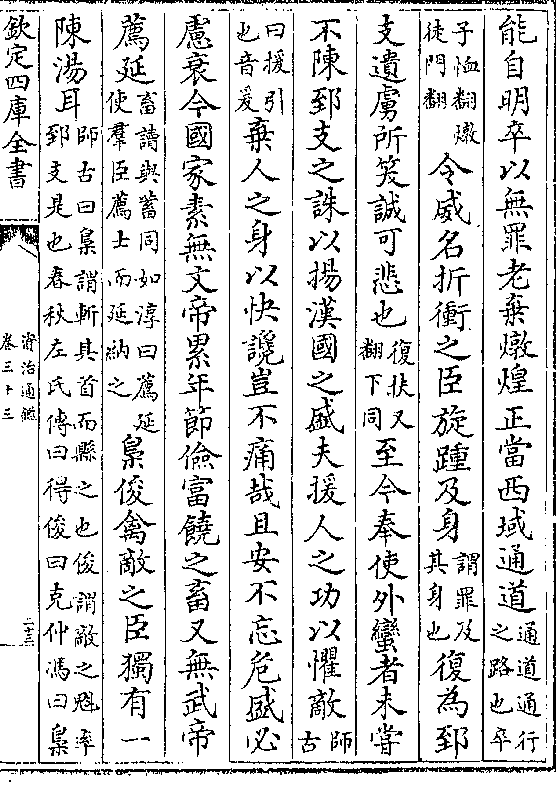 能自明卒以無罪老棄燉煌正當西域通道通道通行之路也卒
子恤翻燉徒門翻令威名折衝之臣旋踵及身謂罪及其身也復為郅
支遺虜所笑誠可悲也復扶又翻下同至今奉使外蠻者未嘗
不陳郅支之誅以揚漢國之盛夫援人之功以懼敵師古
曰援引也音爰棄人之身以快讒豈不痛哉且安不忘危盛必
慮衰今國家素無文帝累年節儉富饒之畜又無武帝
薦延畜讀與蓄同如淳曰薦延使羣臣薦士而延納之梟俊禽敵之臣獨有一
陳湯耳師古曰梟謂斬其首而縣之也俊謂敵之魁率郅支是也春秋左氏傳曰得俊曰克仲馮曰梟
欽定四庫全書
資治通鑑
卷三十三
二十三